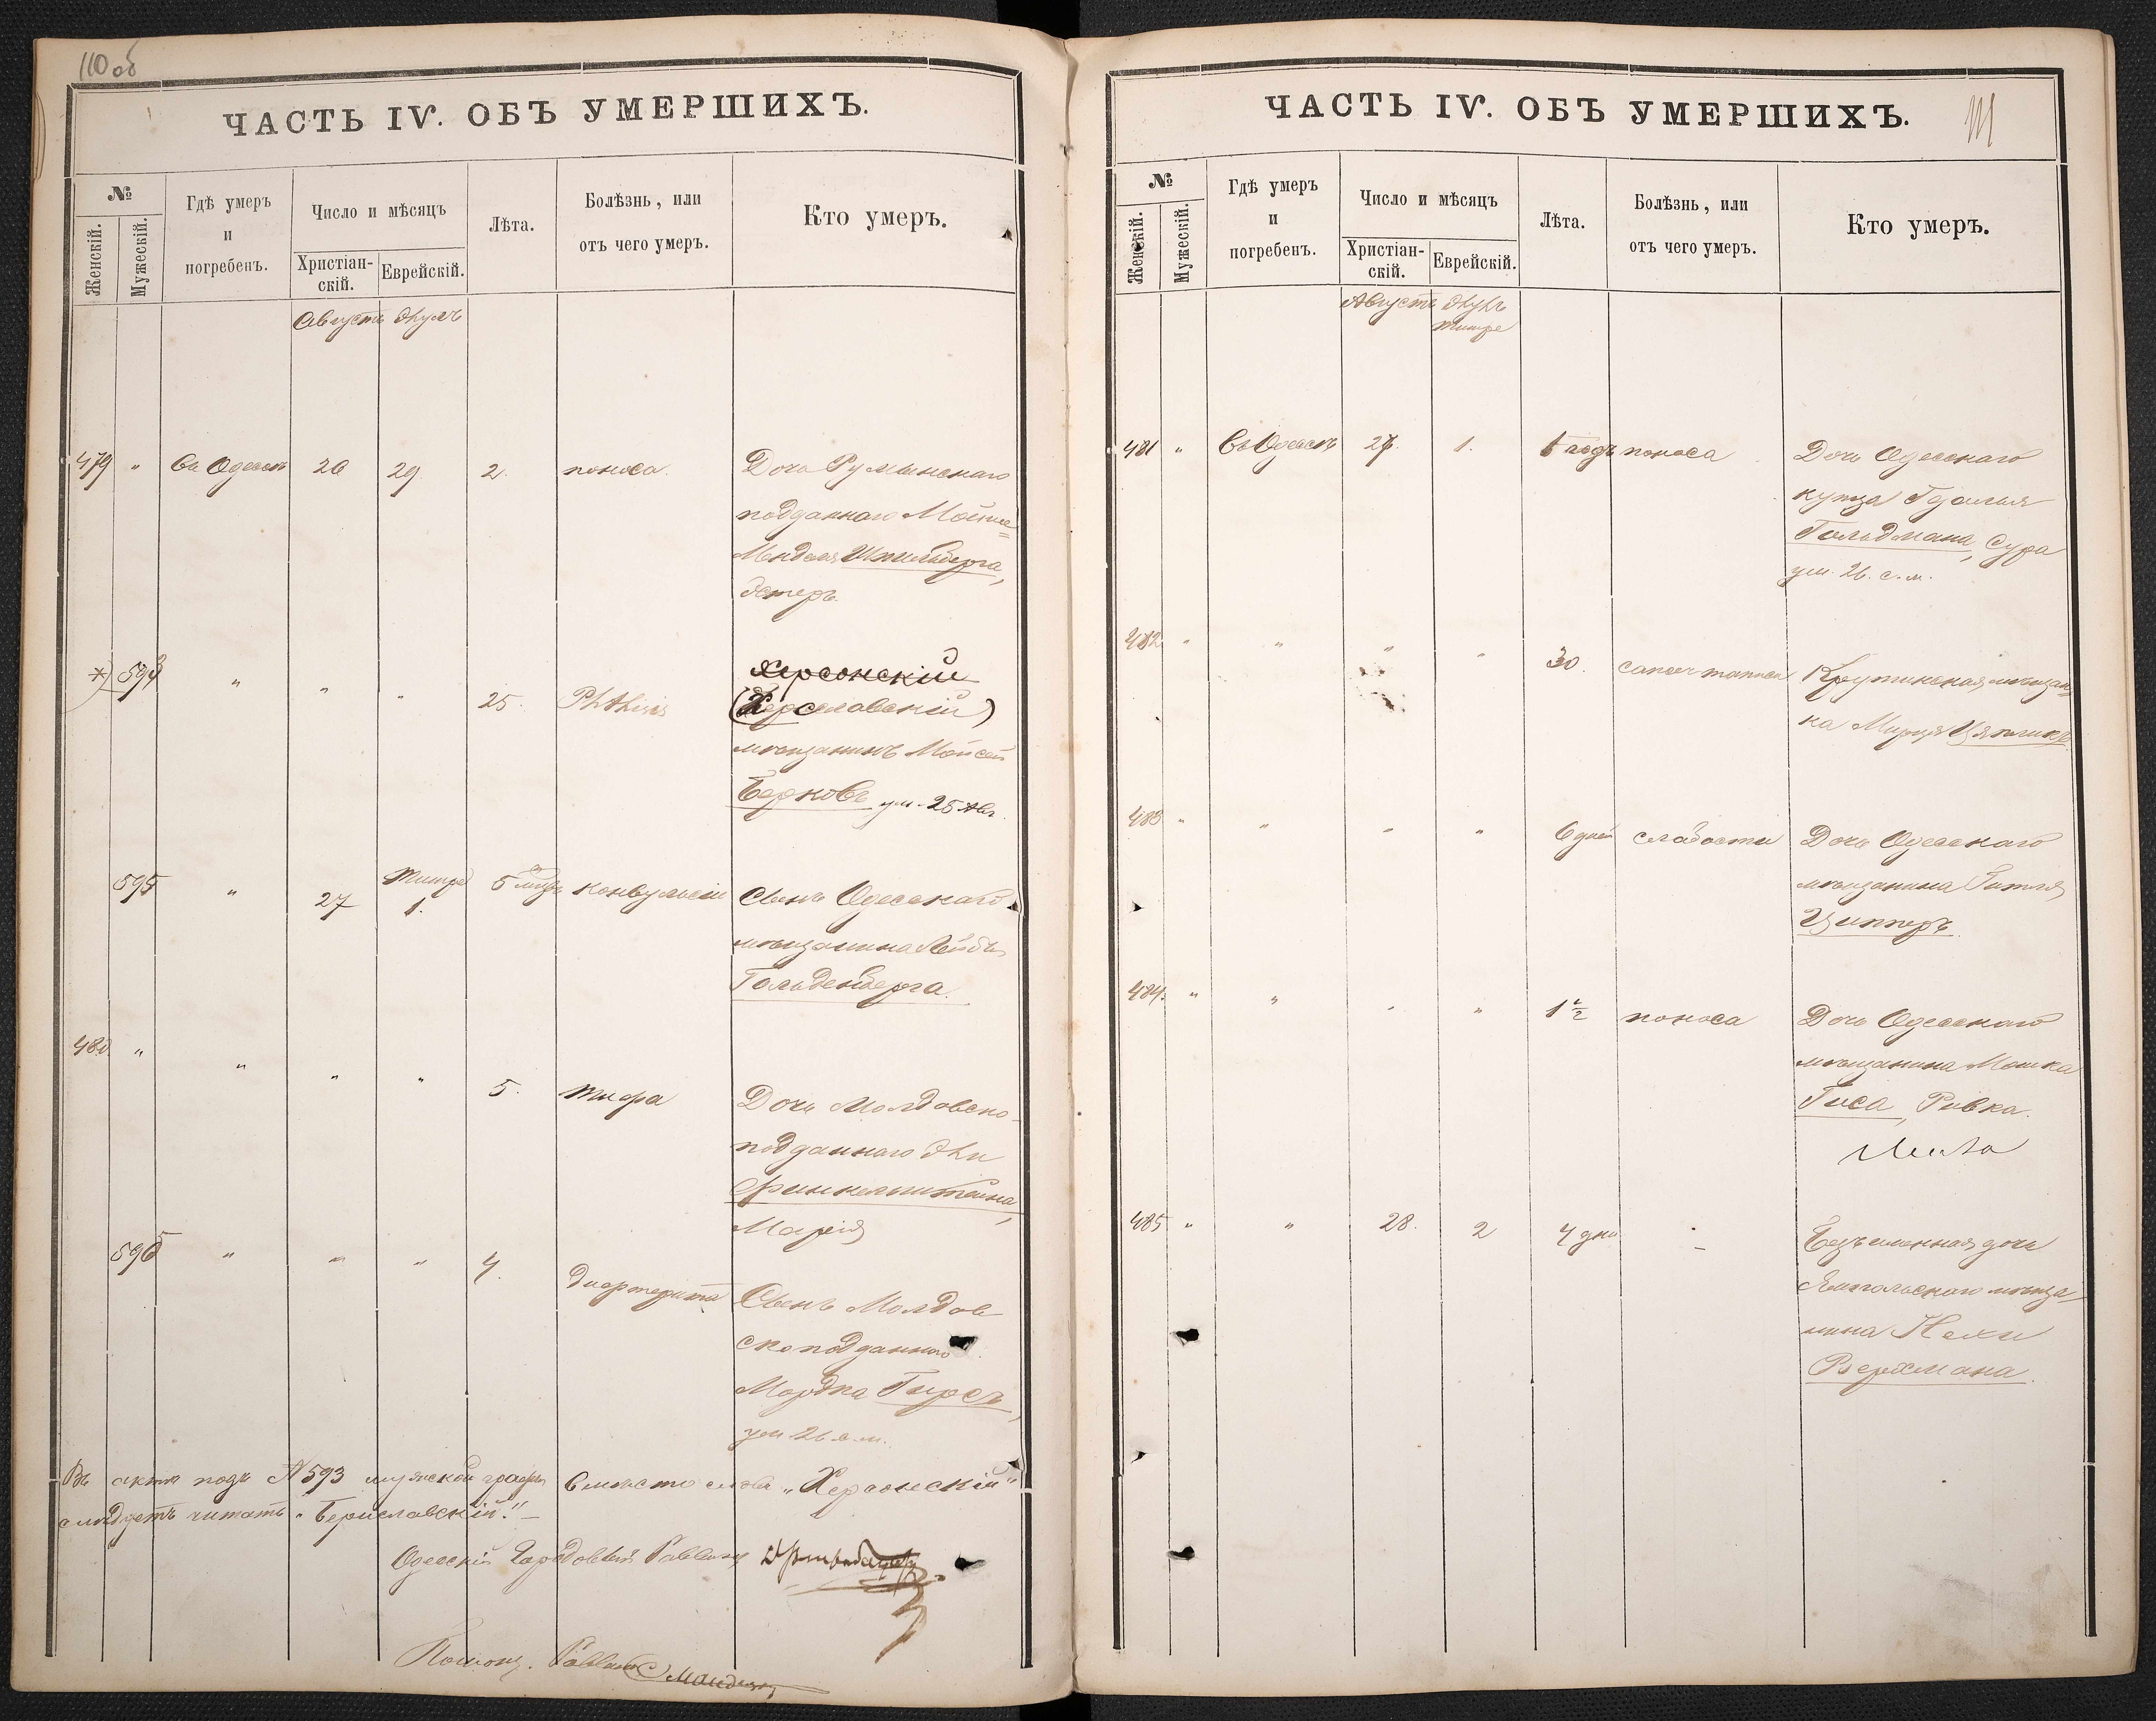 110 об
ЧАСТЬ IV. ОБЪ УМЕРШИХЪ.
№
Женскій.
Мужескій.
Гдѣ умеръ
и
погребенъ.
Число и мѣсяцъ
Христіан-
скій.
Еврейскій.
Лѣта.
Болѣзнь, или
отъ чего умеръ.
Кто умеръ.
Августъ Элулъ
479 " Въ Одессѣ 26 29 2. поноса. Дочь Румынскаго
подданнаго Мойше=
Менделя Шпильберга,
Эстеръ.
*) 593 " " " 25. Phthisis Херсонскій
(Бериславскій)
мѣщанинъ Мойсей
Берковъ ум. 25 Авг.
595 " 27 Тишре 1. 5 мцъ конвульсіи Сынъ Одесскаго
мѣщанина Лейбы
Гольденберга.
480 " " " " 5. тифа Дочь Молдовско
подданнаго Эли
Финкельштейна,
Марія
596 " " " 4. дифтерита Сынъ Молдов
скоподданнаго
Мордка Гирсъ,
ум 26 с.м.
Въ актѣ подъ № 593 мужской графы вмѣсто слова „Херсонскій"
слѣдуетъ читать „Бериславскій". —
Одесскій Городовой Раввинъ
Помощ. Раввина
ЧАСТЬ IV. ОБЪ УМЕРШИХЪ.
111
№
Женскій.
Мужескій.
Гдѣ умеръ
и
погребенъ.
Число и мѣсяцъ
Христіан-
скій.
Еврейскій.
Лѣта.
Болѣзнь, или
отъ чего умеръ.
Кто умеръ.
Августъ Элулъ
Тишре
481 " Въ Одессѣ 27. 1. 1 годъ поноса Дочь Одесскаго
купца Гдалья
Гольдмана, Сура
ум. 26. с. м.
482 " " " " 30. Крутинская мѣщан=
ка Мирля
483 " " " " 6 дней слабости Дочь Одесскаго
мѣщанина
Ципперъ
484. " " " " 1½ поноса Дочь Одесскаго
мѣщанина Мошка
Гиса, Ривка.
485 " " 28. 2 4 дни – Безъименная дочь
Ямпольскаго мѣща-
нина
Верхмана.